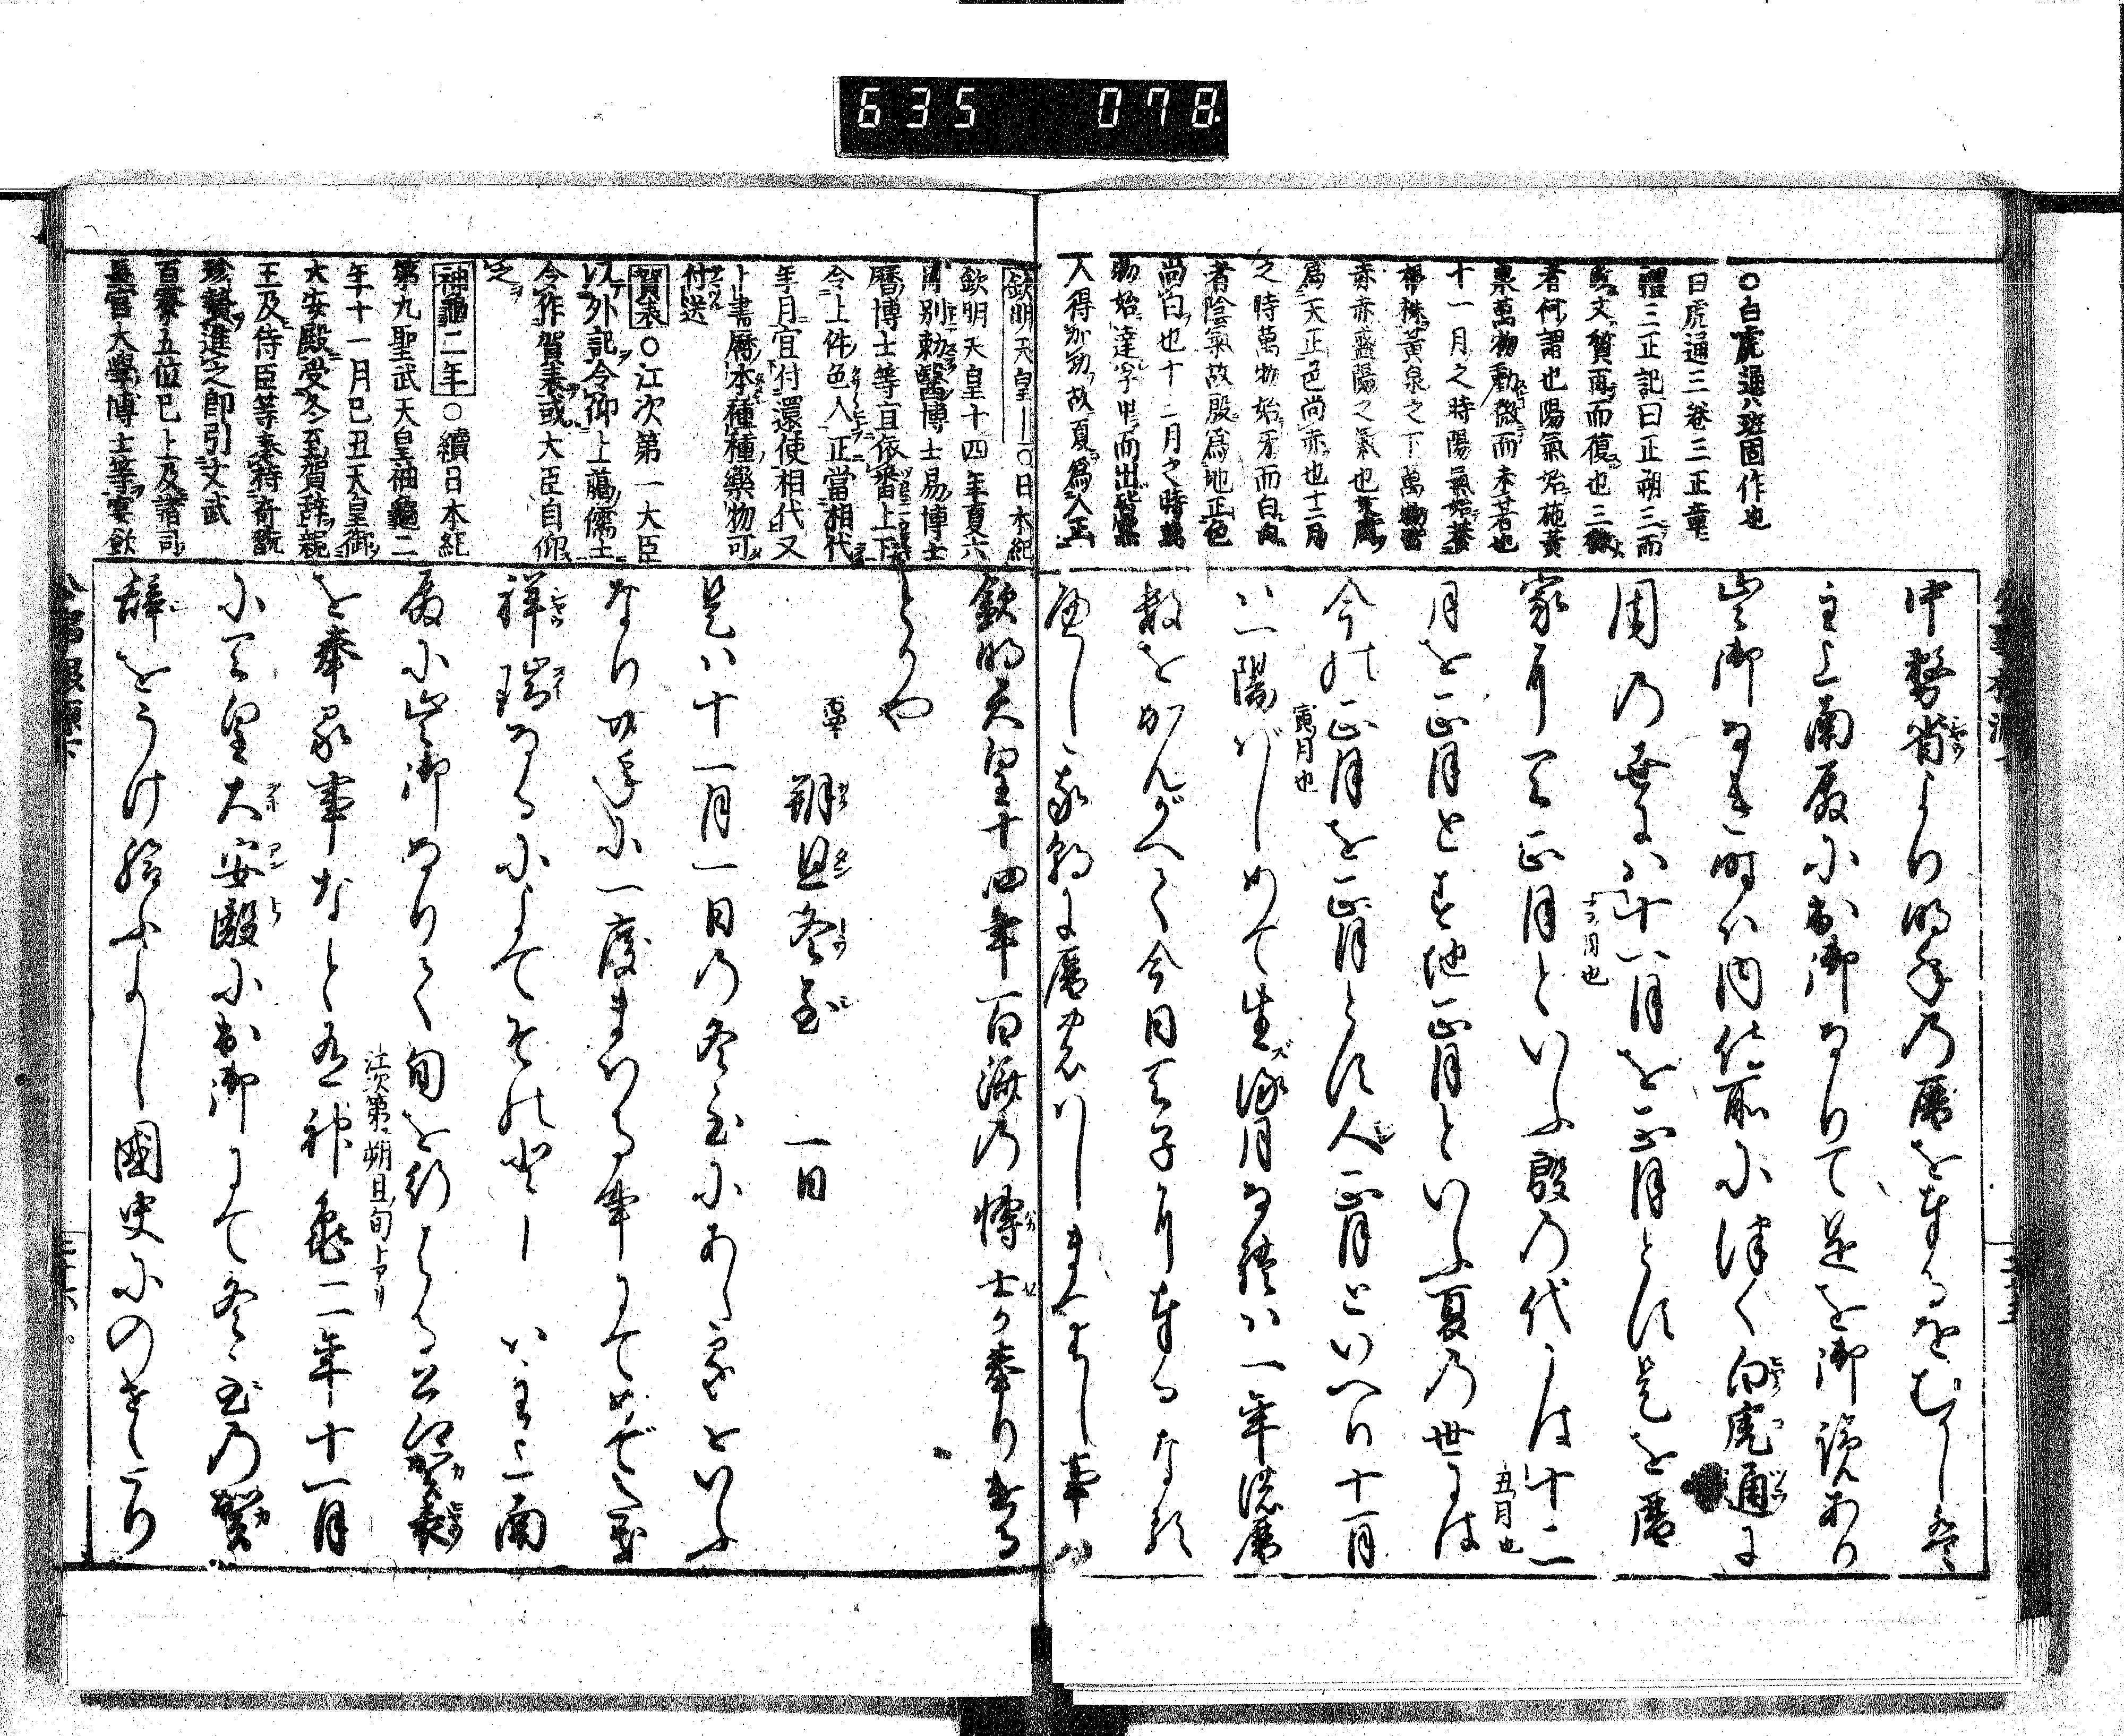 635 078
○白虎通八班固作也
白虎通三卷三正章
禮三正記曰正朔三而
改文質再而復也三微
者何謂也陽氣始施黃
泉萬物動微而未著也
十一月之時陽氣始養
根株黃泉之下萬物皆
赤赤盛陽之氣也故周
爲天正色尚赤也十二月
之時萬物始牙而白白
者陰氣故殷爲地正色
尚白也十三月之時萬
物始達孚甲而出皆黑
人得加功故夏爲人正
中務省より明年の暦を奉るをむかしは
主上南殿に出御なりて是を御覧あり
出御なき時は内侍所に付く白虎通に
周の世には十一月を正月とす是を暦
十一月也
家に天正月といふ殷の代には十二
丑月也
月を正月とす地正月といふ夏の世には
今の正月を正月とす人正月といへり十一月
寅月也
は一陽はじめて生ずる月なれば一年の暦
数をかんがへて今日天子に奉るなり
欽明天皇―○日本紀
欽明天皇十四年夏六
月別勅醫博士易博士
曆博士等宜依番上下
令上件色人正當相代
年月宜付還使相代又
卜書曆本種種藥物可
付送
賀表○江次第一大臣
以外記令仰上﨟儒士
令作賀表或大臣自仰
之
神龜二年○續日本紀
第九聖武天皇神龜二
年十一月己丑天皇御
大安殿受冬至賀辞親
王及侍臣等奉持奇翫
珍贄進之即引文武
百寮五位已上及諸司
長官大學博士等宴飲
欽明天皇十四年百済の博士か奉りける
とかや
朔旦冬至 一日
是は十一月一日の冬至にあたるをいふ
なり廿年に一度まはる事にてめでたき
祥瑞なるによてその日は主上南
殿に出御なりて旬を行はる公卿賀表
江次第朔旦旬上アリ
を奉る事なとも有神亀二年十一月
に天皇大安殿に出御にて冬至の賀
辞をうけ給ふよし國史にのせたり